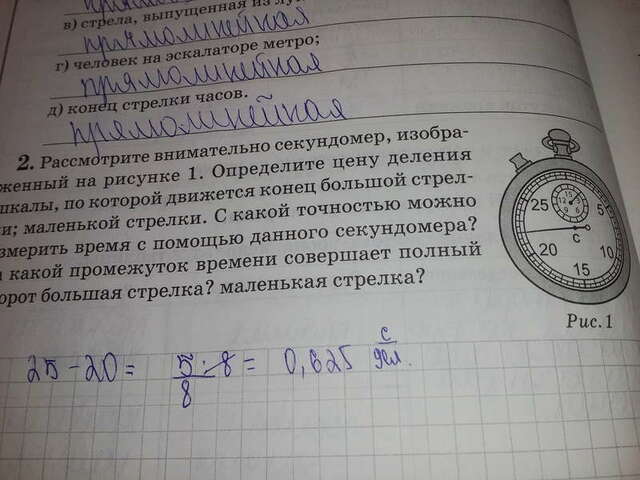 прямолинейная
в) стрела, выпущенная из лу
прямолинейная
г) человек на эскалаторе метро;
прямолинейная
д) конец стрелки часов.
прямолинейная
2. Рассмотрите внимательно секундомер, изобра-
женный на рисунке 1. Определите цену деления
шкалы, по которой движется конец большой стрел-
и; маленькой стрелки. С какой точностью можно
змерить время с помощью данного секундомера?
а какой промежуток времени совершает полный
орот большая стрелка? маленькая стрелка?
25 5
20 с 10
15
Рис. 1
25 - 20 = 5 : 8 = 0,625 с
8 дел.